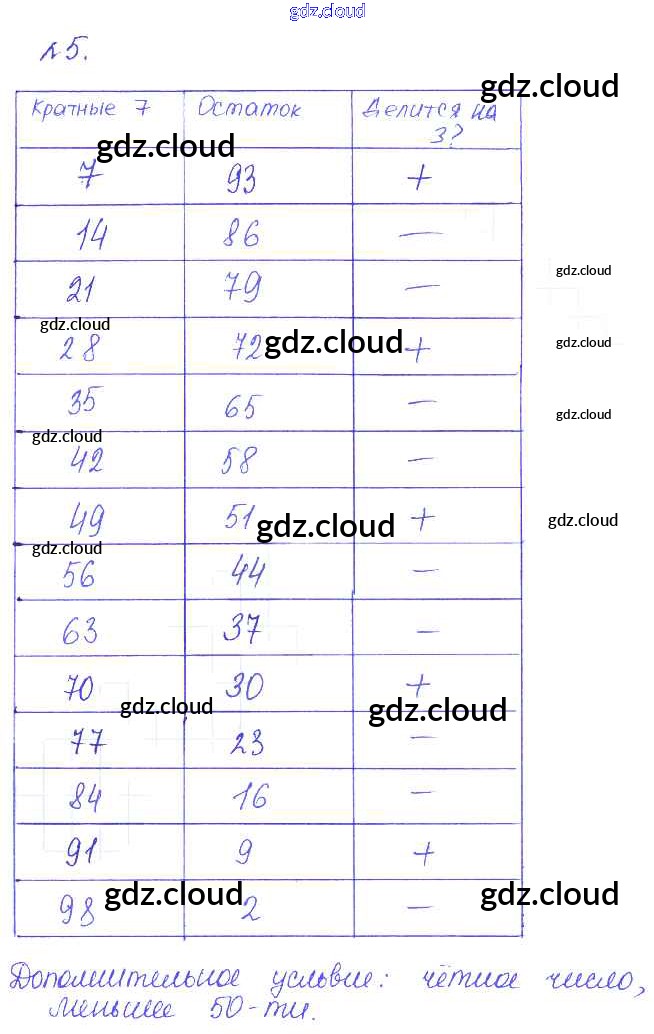 gdz.cloud
№5.
gdz.cloud
Кратные 7 Остаток Делится на 3?
gdz.cloud
7 93 +
14 86 —
21 79 —
gdz.cloud
gdz.cloud
28 72 +
gdz.cloud
gdz.cloud
35 65 —
gdz.cloud
gdz.cloud
42 58 —
49 51 +
gdz.cloud
gdz.cloud
gdz.cloud
56 44 —
63 37 —
70 30 +
gdz.cloud
gdz.cloud
77 23 —
84 16 —
91 9 +
gdz.cloud
gdz.cloud
98 2 —
Дополнительное условие: чётное число,
меньшее 50-ти.